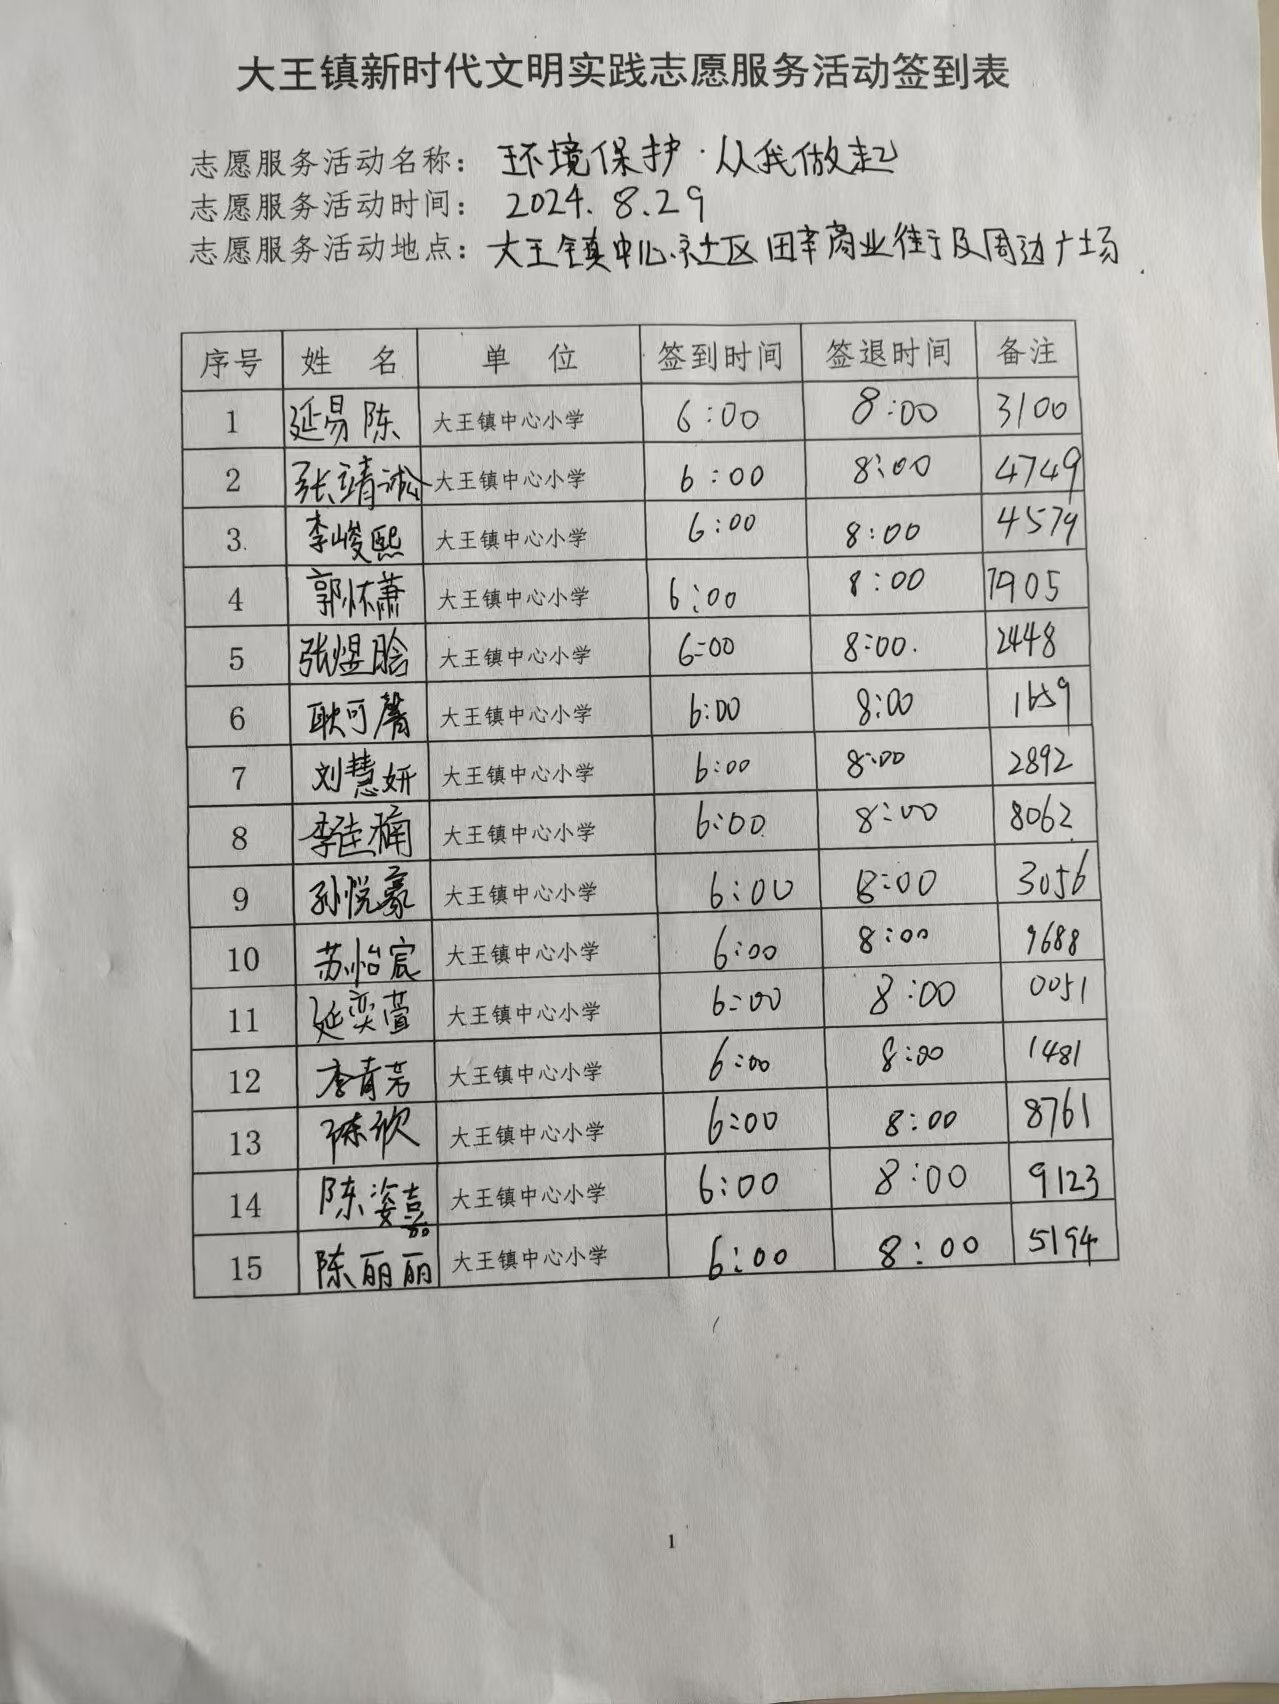 大王镇新时代文明实践志愿服务活动签到表
志愿服务活动名称：环境保护·从我做起
志愿服务活动时间：2024.8.29
志愿服务活动地点：大王镇中心社区田辛商业街及周边广场
序号 姓 名 单 位 签到时间 签退时间 备注
1 延易陈 大王镇中心小学 6:00 8:00 3100
2 张靖淞 大王镇中心小学 6:00 8:00 4749
3 李峻熙 大王镇中心小学 6:00 8:00 4579
4 郭怀萧 大王镇中心小学 6:00 8:00 7905
5 张煜晗 大王镇中心小学 6:00 8:00 2448
6 耿可馨 大王镇中心小学 6:00 8:00 1659
7 刘慧妍 大王镇中心小学 6:00 8:00 2892
8 李佳楠 大王镇中心小学 6:00 8:00 8062
9 孙悦豪 大王镇中心小学 6:00 8:00 3056
10 苏怡宸 大王镇中心小学 6:00 8:00 9688
11 延奕萱 大王镇中心小学 6:00 8:00 0051
12 李青芳 大王镇中心小学 6:00 8:00 1481
13 陈欣 大王镇中心小学 6:00 8:00 8761
14 陈姿嘉 大王镇中心小学 6:00 8:00 9123
15 陈丽丽 大王镇中心小学 6:00 8:00 5194
1